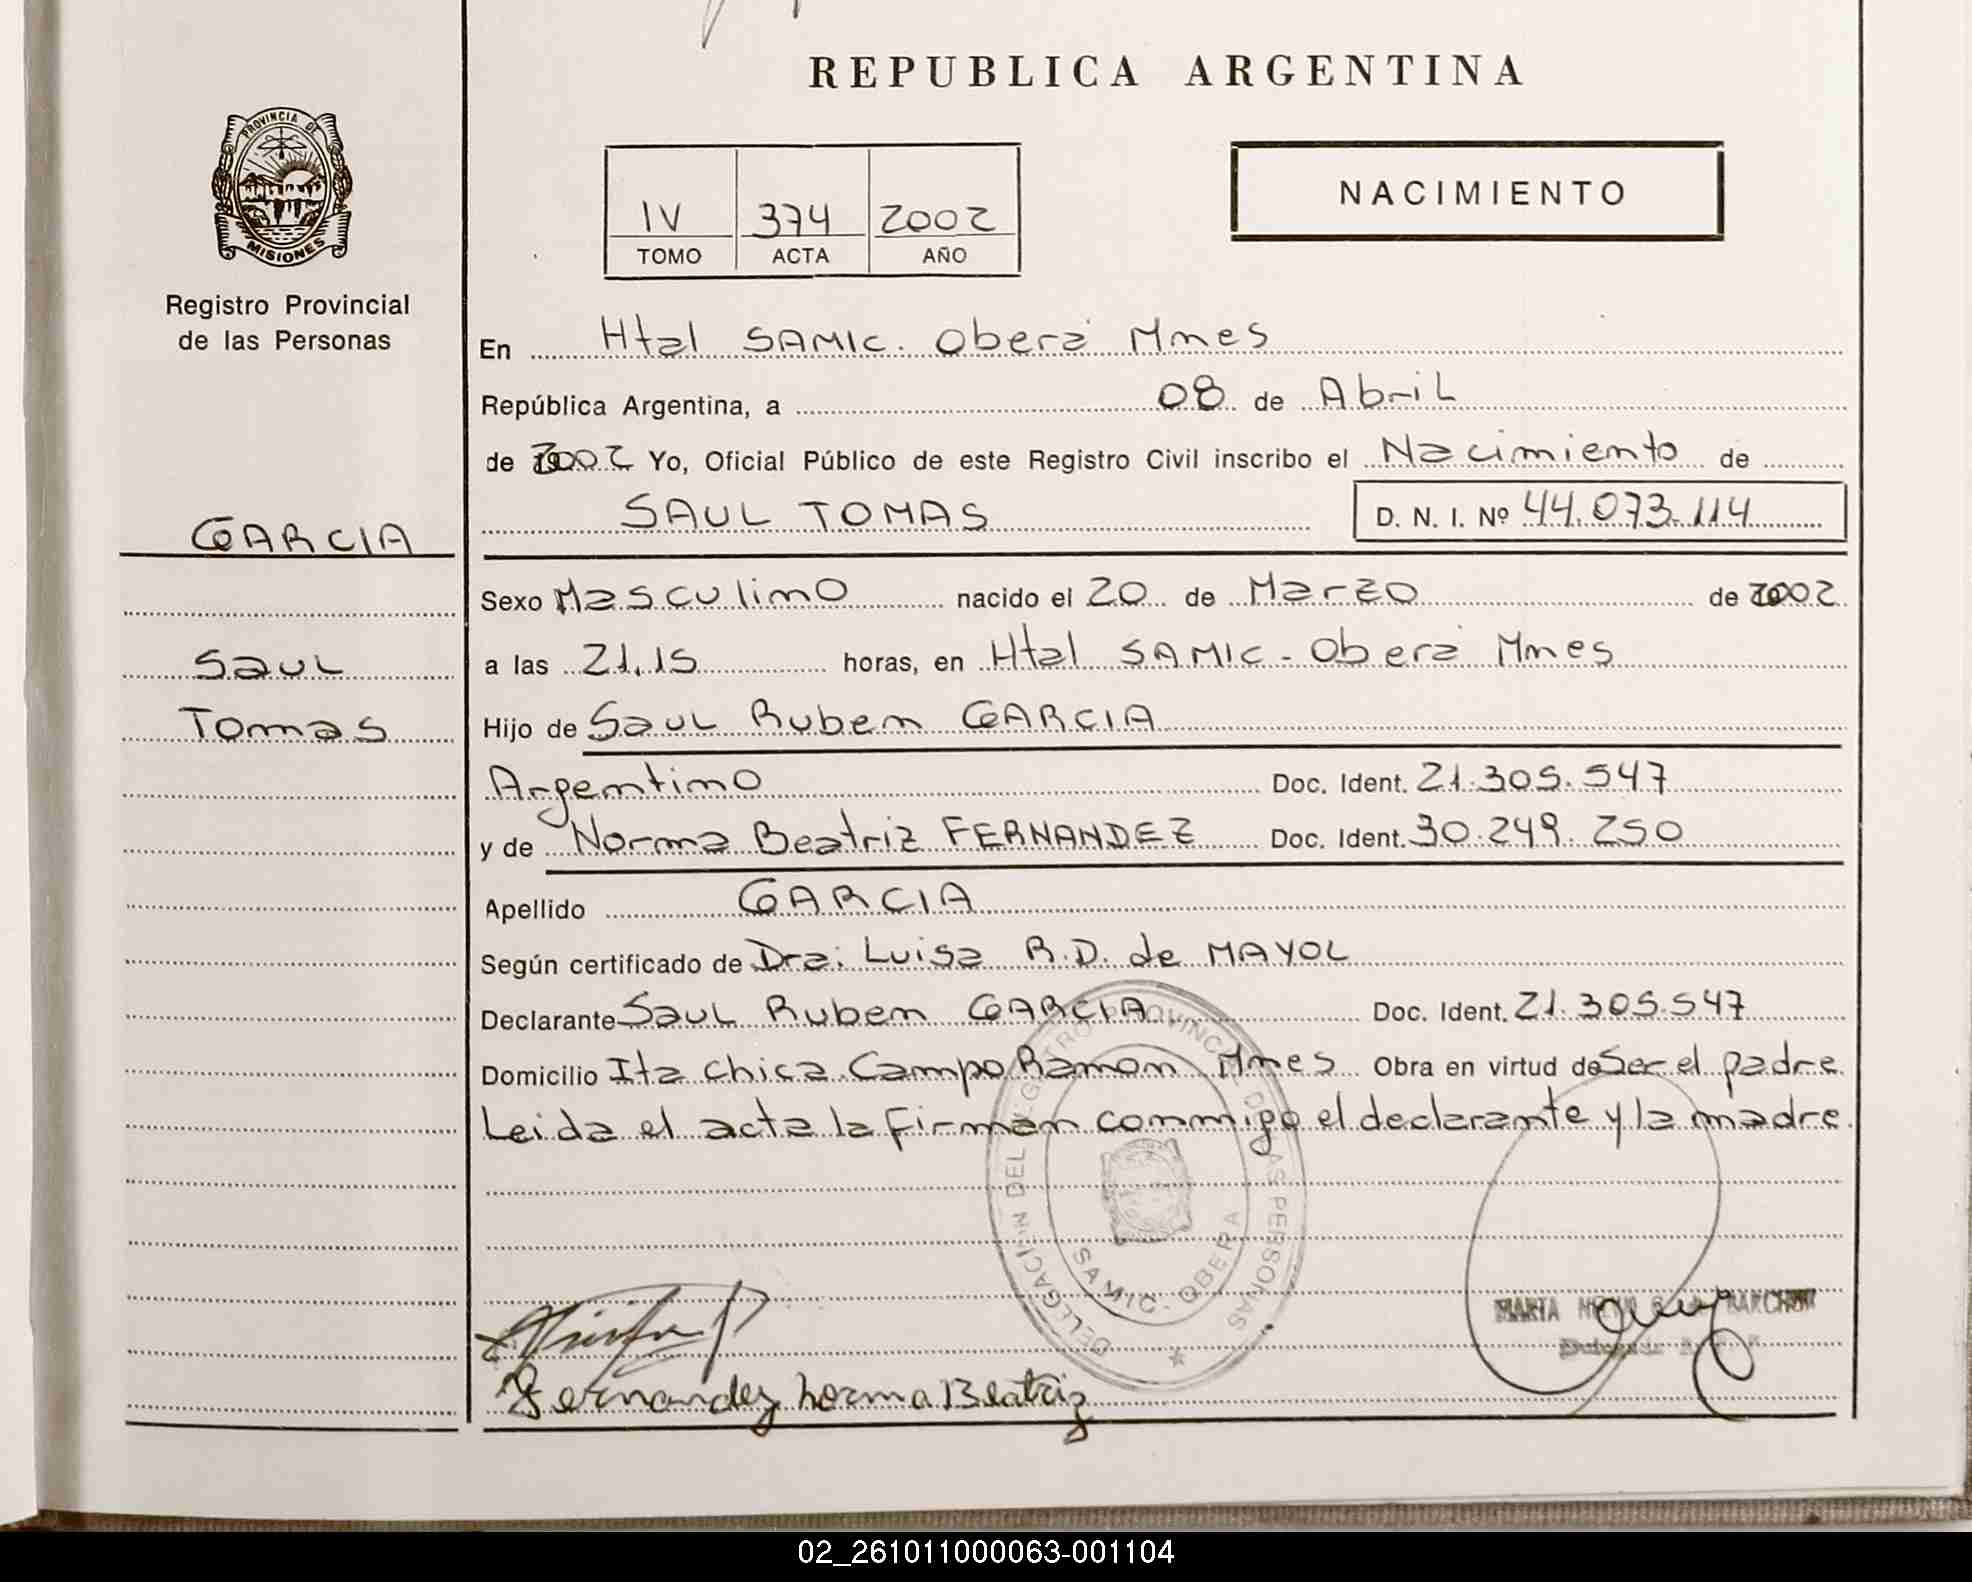 REPUBLICA ARGENTINA
PROVINCIA DE
MISIONES
Registro Provincial
de las Personas
IV 374 2002
TOMO ACTA AÑO
NACIMIENTO
En Htal SAMIC. Oberá Mnes
República Argentina, a 08 de Abril
de 2002 Yo, Oficial Público de este Registro Civil inscribo el Nacimiento de
SAUL TOMAS D. N. I. Nº 44.073.114
GARCIA
Saul
Tomas
Sexo Masculino nacido el 20 de Marzo de 2002
a las 21.15 horas, en Htal SAMIC - Oberá Mnes
Hijo de Saul Ruben GARCIA
Argentino Doc. Ident. 21.305.547
y de Norma Beatriz FERNANDEZ Doc. Ident. 30.249.250
Apellido GARCIA
Según certificado de Dra: Luisa R.D. de MAYOL
Declarante Saul Ruben GARCIA Doc. Ident. 21.305.547
Domicilio Ita Chica Campo Ramon Mnes Obra en virtud de Ser el padre
Leida el acta la firman conmigo el declarante y la madre
DELEGACION DEL REGISTRO PROVINCIAL DE LAS PERSONAS
SAMIC - OBERA
MARTA
Fernandez Norma Beatriz
02_261011000063-001104